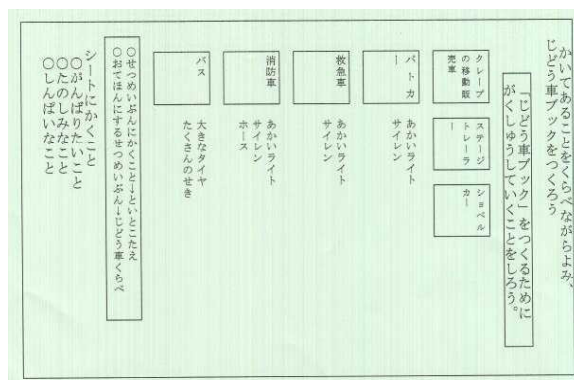 かいてあることをくらべながらよみ、
じどう車ブックをつくろう
「じどう車ブック」をつくるために
がくしゅうしていくことをしろう。
クレープ
の移動販
売車
ステージ
トレーラ
ー
ショベル
カー
パトカ
ー
あかいライト
サイレン
救急車
あかいライト
サイレン
消防車
あかいライト
サイレン
ホース
バス
大きなタイヤ
たくさんのせき
○せつめいぶんにかくこと→といとこたえ
○おてほんにするせつめいぶん→じどう車くらべ
シートにかくこと
○がんばりたいこと
○たのしみなこと
○しんぱいなこと